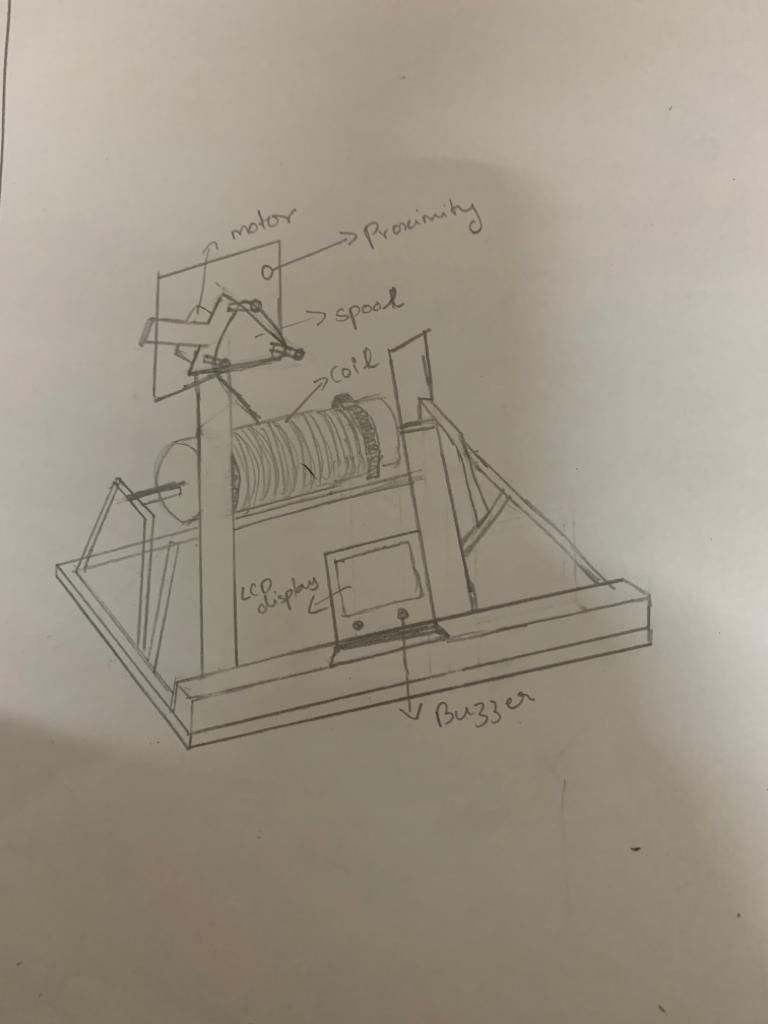 motor
Proximity
spool
coil
LCP
display
Buzzer